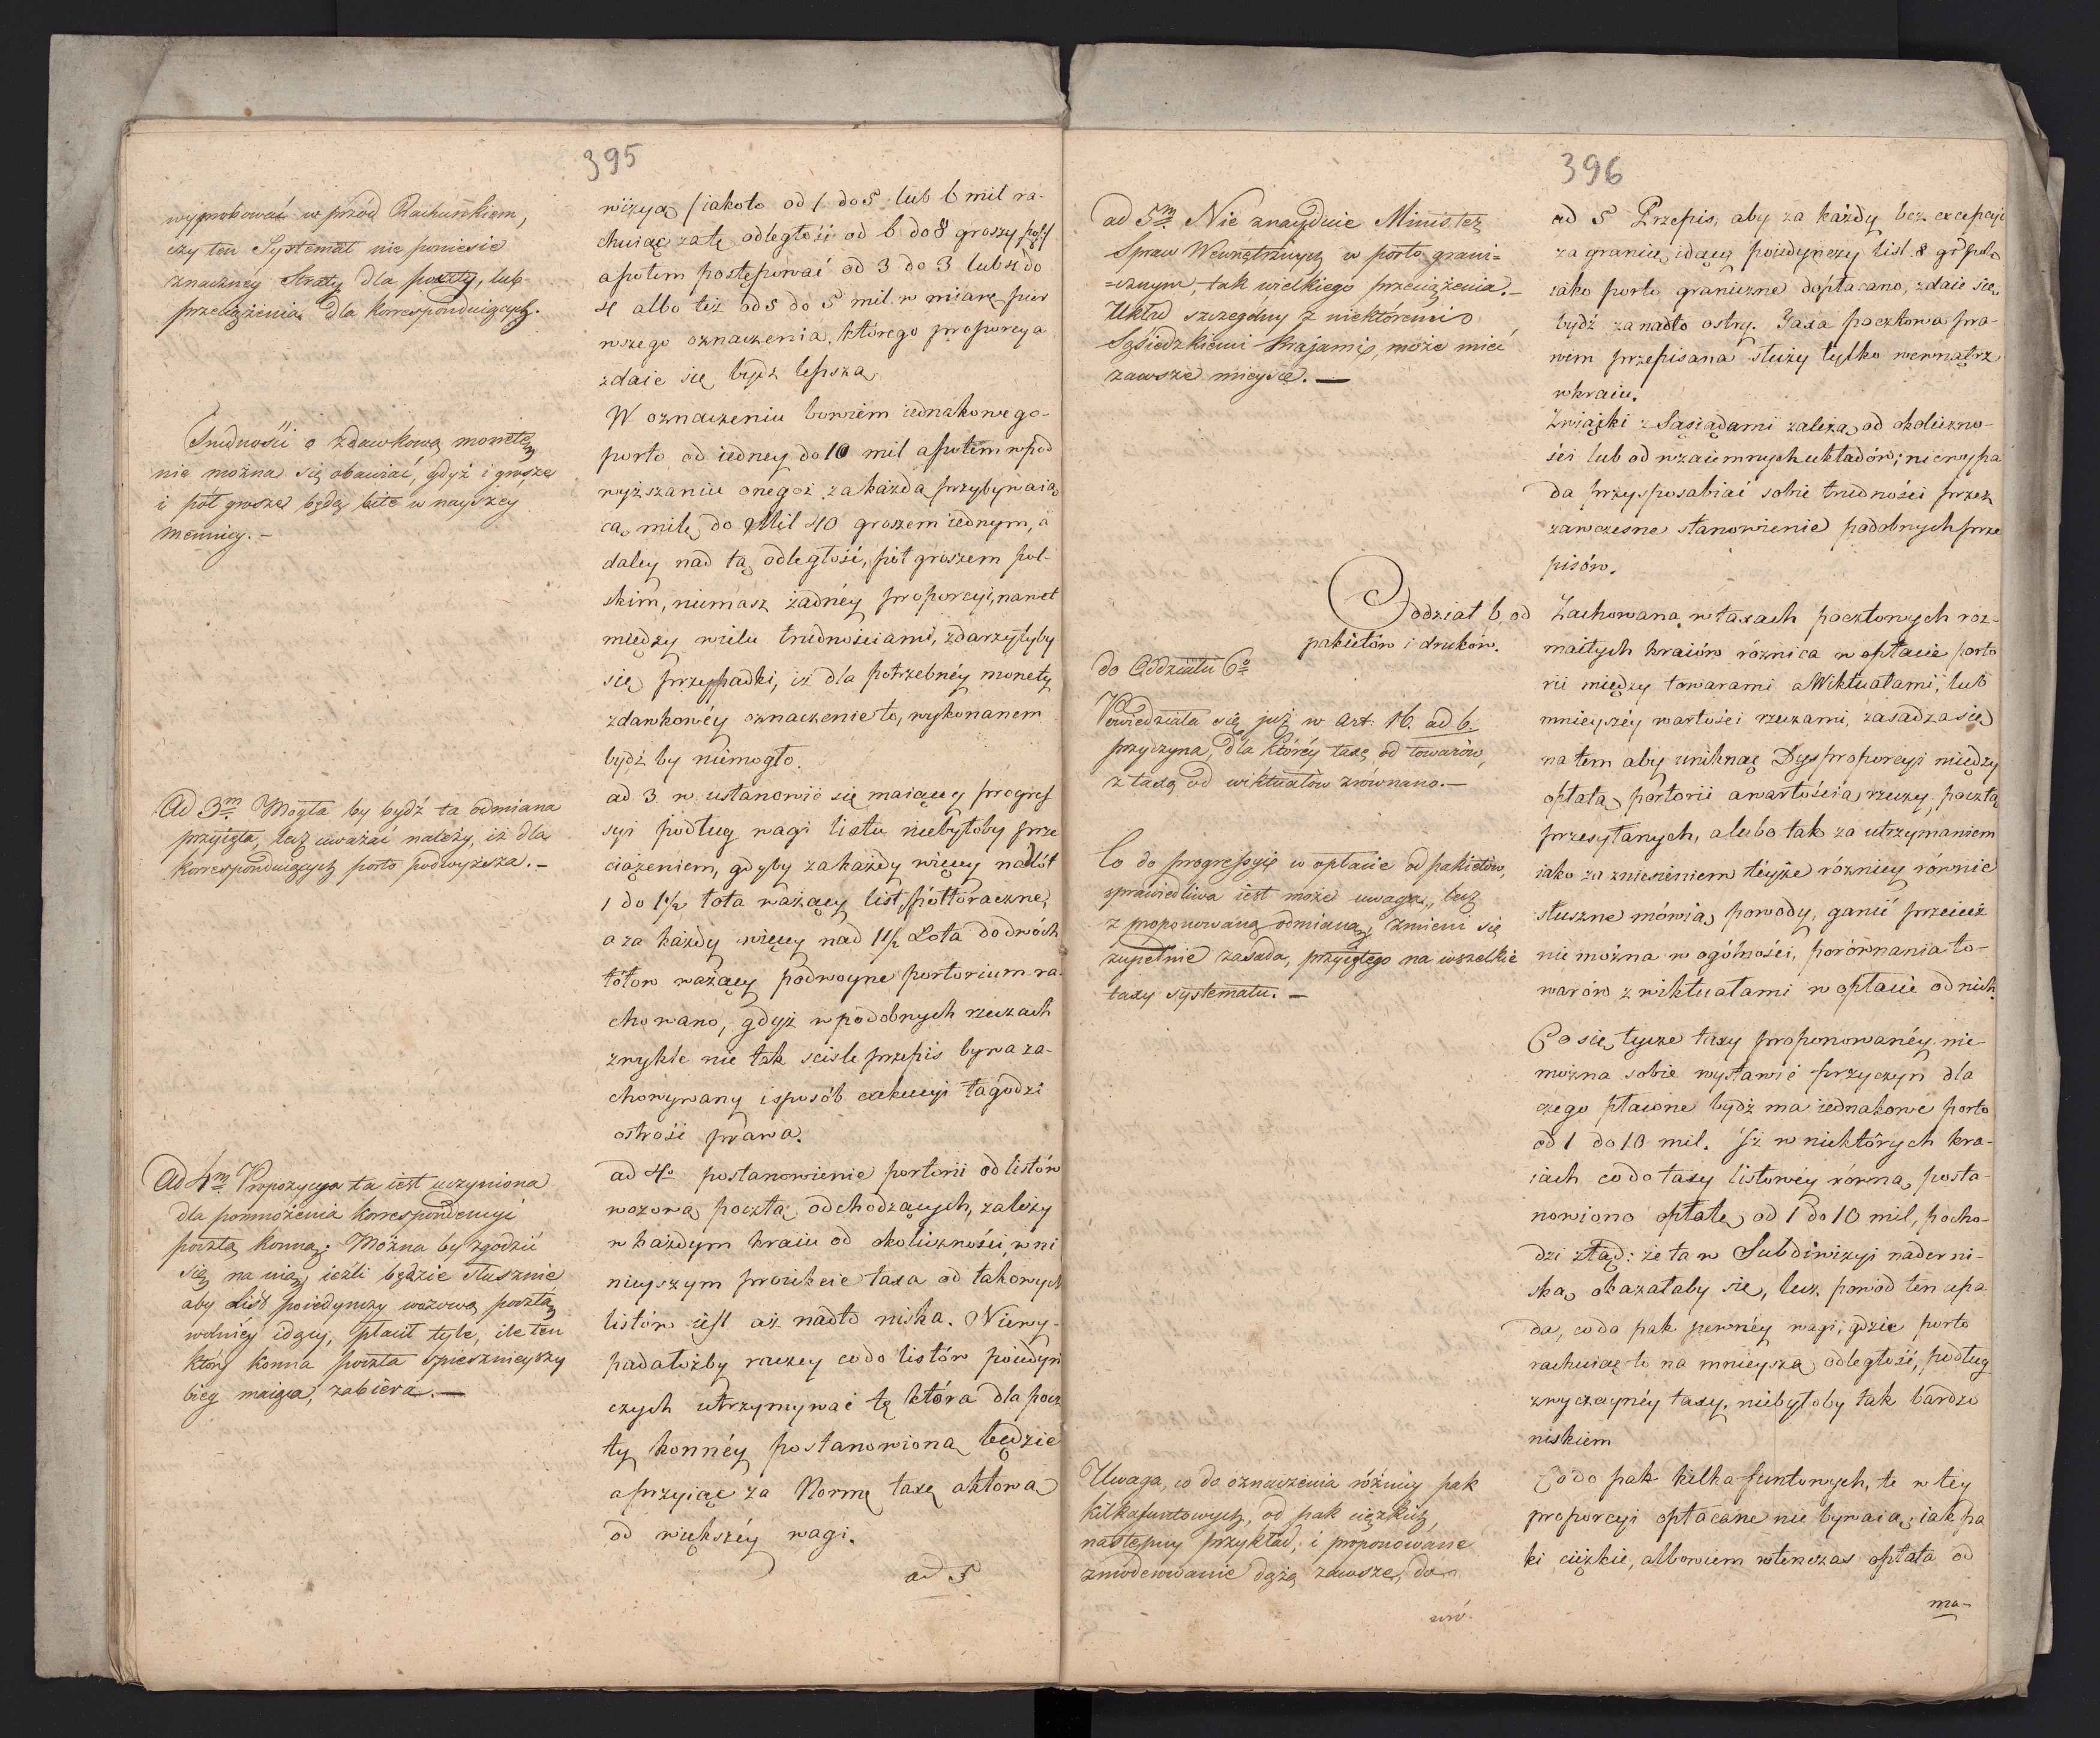 395
wyprobować w przód Rachunkiem,
czy ten Systemat nie poniesie
znaczney straty dla poczty, lub
przeciążenia dla korresponduiących.
Trudności o zdawkową monetę
nie można się obawiać, gdyż i grosze
i pół grosze będą bite w nayszey
mennicy. –
Ad 3m Mogła by bydź ta odmiana
przyięta, lecz uważać należy, iż dla
korresponduiących porto podwyższa. –
Ad 4m Propozycya ta iest uczyniona
dla pomnożenia korrespondencyi
pocztą konną. Można by zgodzić
się na nią, ieżli będzie słusznie
aby List poiedynczy wozową pocztą
wolniéy idący, płacił tyle, ile ten
który konna poczta spiesznieyszy
bieg maiąca, zabiera. —
wizyą (iakoto od 1 do 5 lub 6 mil ra-
chuiąc zatę odległości od 6 do 8 groszy pols
apotem postępować od 3 do 3 lub 4 do
4 albo też od 5 do 5 mil w miarę pier
wszego oznaczenia, którego proporcya
zdaie się bydz lepsza,
W oznaczeniu bowiem iednakowego-
porto od iedney do 10 mil apotem wpod
wyższaniu onegoż zakażdą przybywaią
cą, milę do Mil 40 groszem iednym, a
daley nad tą odległość, pół groszem pol-
skim, niemasz żadnéy proporcyi, nawet
między wielu trudnościami, zdarzyłyby
się przypadki, iż dla potrzebnéy monety
zdawkowéy oznaczenie to, wykonanem
bydź by niemogło.
ad 3 w ustanowić się maiącey progres
syi podług wagi listu niebyłoby prze
ciążeniem, gdyby zakażdy więcey nadłót
1 do 1½ łóta ważący list, półtoraczne,
a za każdy więcey nad 1½ Łóta do dwóch
łótow ważący podwoyne portorium ra-
chowano, gdyż w podobnych rzeczach
zwykle nie tak scisle przepis bywa za-
chowywany i sposób exekucyi łagodzi
ostrość prawa.
ad 4o postanowienie portorii od listów
wozową pocztą odchodzących, zależy
w każdym kraiu od okoliczności, w ni
nieyszym proiekcie taxa od takowych
listów iest aż nadto niska. Niewy-
padałożby raczey co do listów poiedyn
czych utrzymywać tę która dla pocz
ty konnéy postanowiona będzie
a przyiąc za Normę taxę aktową
od większéy wagi.
ad 5
396
ad 5m Nie znayduie Minister
Spraw Wewnętrznych w porto grani=
=cznym, tak wielkiego przeciążenia. –
Układ szczególny z niektóremi
Sąsiedzkiemi krajami, może mieć
zawsze mieysce. —
Oddział 6. od
pakietów i druków.
do Oddziału 6o
Powiedziała się już w Art: 16. ad 6.
przyczyna, dla któréy taxę od towarów,
z taxą od wiktuałów zrównano. —
Co do progressyi w opłacie od pakietów,
sprawiedliwa iest może uwaga, lecz
z proponowaną odmianą, zmieni się
zupełnie zasada, przyiętego na wszelkie
taxy systematu. –
Uwaga, co do oznaczenia różnicy pak
kilkafuntowych, od pak cięzkich,
następny przykład, i proponowane
zmoderowanie dążą zawsze, do
wró-
ad 5 Przepis, aby za każdy bez excepcyi
za granicę idący poiedynczy list 8 gr pols
iako porto graniczne dopłacano, zdaie się,
bydź zanadto ostry. Taxa pocztowa pra-
wem przepisana służy tylko wewnątrz
wkraiu.
Związki z Sąsiądami zależą od okoliczno-
ści lub od wzaiemnych układów; niewypa
da przysposabiać sobie trudności przez
zawczesne stanowienie podobnych prze
pisów.
Zachowana w taxach pocztowych roz-
maitych kraiów różnica w opłacie porto
rii między towarami a Wiktuałami, lub
mnieyszéy wartości rzeczami, zasadza się
na tem aby uniknąc Dysproporcyi między
opłatą portorii a wartością rzeczy, pocztą
przesyłanych, a lubo tak za utrzymaniem
iako za zniesieniem téyże różnicy równie
słuszne mówią powody, ganić przecież
nie można w ogólności, porównania to-
warów z wiktuałami w opłacie od nich.
Co się tycze taxy proponowanéy, nie-
można sobie wystawić przyczyn dla
czego płacone bydź ma iednakowe porto
od 1 do 10 mil. Iż w niektórych kra-
iach co do taxy listowéy równą posta-
nowiono opłatę od 1 do 10 mil, pocho-
dzi ztąd: że ta w Subdiwizyi nader ni-
ską okazałaby się, lecz powód ten upa
da, co do pak pewnéy wagi, gdzie porto
rachuiąc to na mnieyszą odległość, podług
zwyczaynéy taxy, niebyłoby tak bardzo
niskiem
Co do pak kilka funtowych, te w téy
proporcyi opłacane nie bywaią, iak pa
ki ciężkie, albowiem wtenczas opłata od
ma-